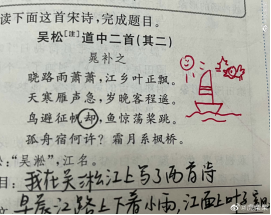 读下面这首宋诗，完成题目。
吴松[注]道中二首(其二)
晁补之
晓路雨萧萧，江乡叶正飘。
天寒雁声急，岁晚客程遥。
鸟避征帆却，鱼惊荡桨跳。
孤舟宿何许？霜月系枫桥。
:“吴淞”，江名。
目：我在吴淞江上写了两首诗
早晨江路上下着小雨，江面上叶子